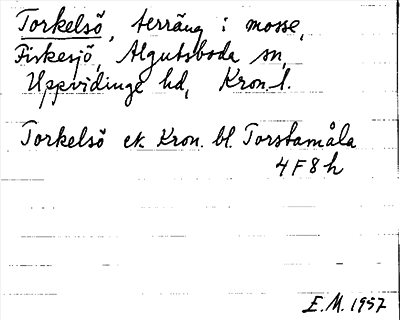 Torkelsö, terräng i mosse,
Fiskesjö, Algutsboda sn,
Uppvidinge hd, Kron. l.
Torkelsö ek. Kron. bl. Torstamåla
4F8h
E.M. 1957